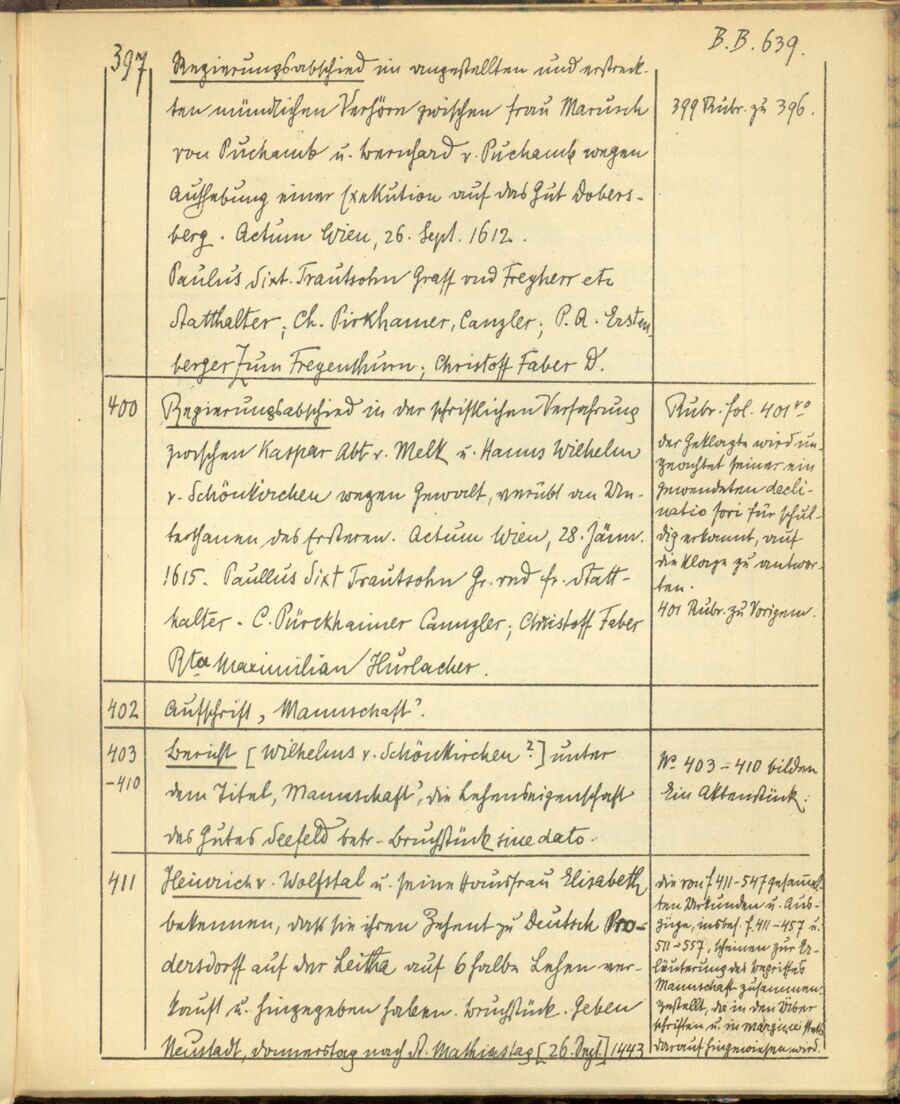 B. B. 639.
397
Regierungsabschied im angestellten und erstreck-
ten mündlichen Verhörn zwischen frau Marusch
von Puchamb u. Bernhard v. Puchamb wegen
Aufhebung einer Exekution auf das Gut Dobers-
berg. Actum Wien, 26. Sept. 1612.
Paulus Sixt. Trautsohn Graff vnd Freyherr etc
Statthalter; Ch. Pirkhamer, Canzler; P. A. Ersten
berger zum Freyenthurn; Christoff Faber D.
399 Rubr. zu 396.
400
Regierungsabschied in der schriftlichen Verfahrung
zwischen Kaspar Abt v. Melk u. Hanns Wilhelm
v. Schönkirchen wegen Gewalt, verübt an Un-
terthanen des Ersteren. Actum Wien, 28. Jänn.
1615. Paullus Sixt Trautsohn Gr. vnd fr. Statt-
halter - C. Pürckhaimer Canngler; Christoff Faber
Rta Maximilian Hürlacher.
Rubr. fol. 401 vo
der Geklagte wird un-
geachtet seiner ein
gewendeten decli-
natio fori für schul-
dig erkannt, auf
die Klage zu antwor-
ten.
401 Rubr. zu Vorigem.
402
Aufschrift „Mannschaft".
403
-410
Bericht [Wilhelms v. Schönkirchen?] unter
dem Titel „Mannschaft", die Lehenseigenschaft
des Gutes Seefeld betr. Bruchstück sine dato.
No 403-410 bilden
Ein Aktenstück.
411
Heinrich v. Wolfstal u. seine Hausfrau Elizabeth
bekennen, daß sie ihren Zehent zu Deutsch Pro-
dersdorff auf der Leitha auf 6 halbe Lehen ver-
kauft u. hingegeben haben. Bruchstück. Geben
Neustadt, Donnerstag nach St. Mathiastag [26. Sept.] 1443
die von f. 411-547 gesamel-
ten Urkunden u. Aus-
züge, insbes. f. 411-457 u.
511-557, scheinen zur Er-
läuterung des Begriffes
Mannschaft zusammen-
gestellt, da in den Über
schriften u. in margine stets
darauf hingewiesen wird.